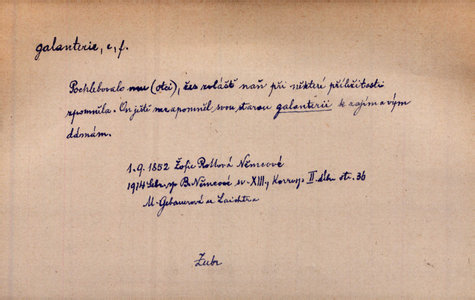 galanterie, e, f.
Pochlebovalo mu (otci), že zvláště naň při některé příležitosti
vzpomněla. On ještě nezapomněl svou starou galanterii k zajímavým
dámám.
1. 9. 1852 Žofie Rottová Němcové
1914 Sebr. sp. B. Němcové sv. XIII, Koresp. II. díl str. 36
M. Gebauerová a Laichter
Zubr